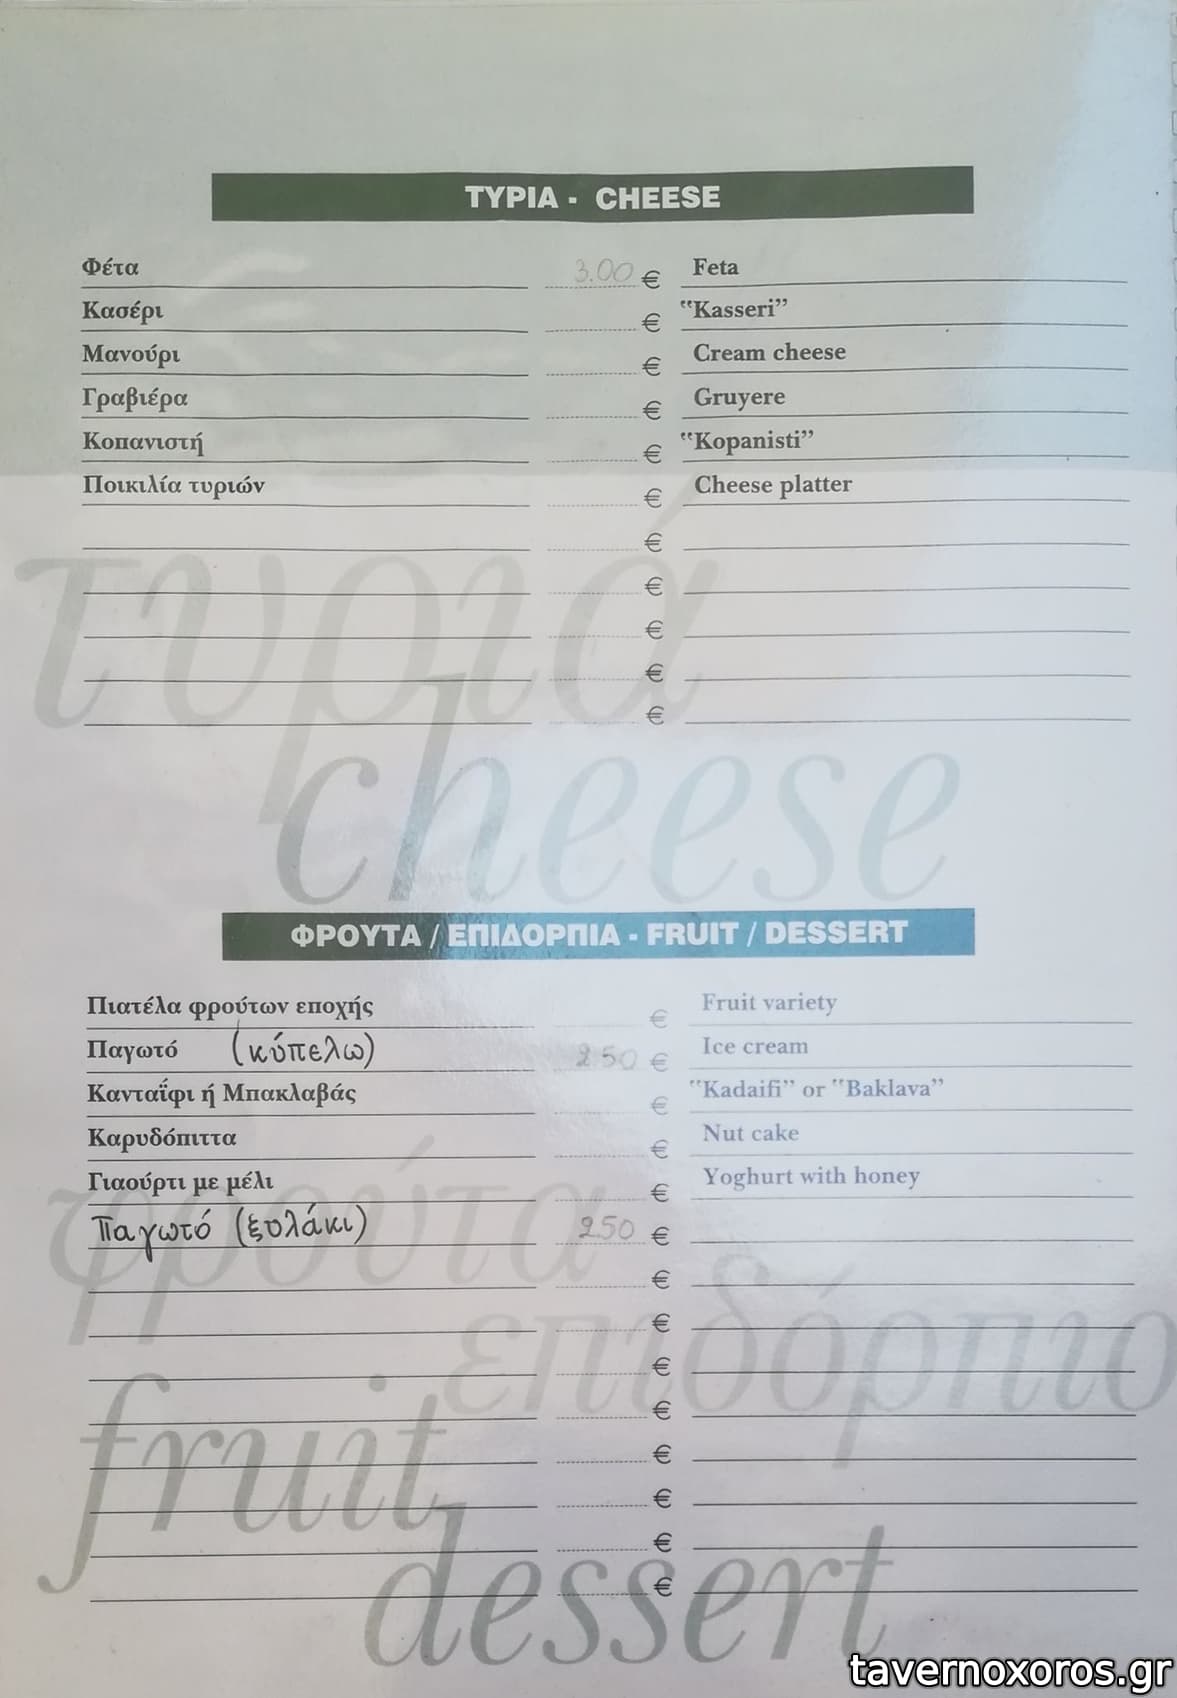 ΤΥΡΙΑ - CHEESE
Φέτα 3.00 € Feta
Κασέρι € "Kasseri"
Μανούρι € Cream cheese
Γραβιέρα € Gruyere
Κοπανιστή € "Kopanisti"
Ποικιλία τυριών € Cheese platter
€
€
€
€
€
τυριά
cheese
ΦΡΟΥΤΑ / ΕΠΙΔΟΡΠΙΑ - FRUIT / DESSERT
Πιατέλα φρούτων εποχής € Fruit variety
Παγωτό (κύπελω) 2.50 € Ice cream
Κανταΐφι ή Μπακλαβάς € "Kadaifi" or "Baklava"
Καρυδόπιττα € Nut cake
Γιαούρτι με μέλι € Yoghurt with honey
Παγωτό (ξυλάκι) 2.50 €
€
€
€
€
€
€
€
€
φρούτα
επιδόρπιο
fruit
dessert
tavernoxoros.gr